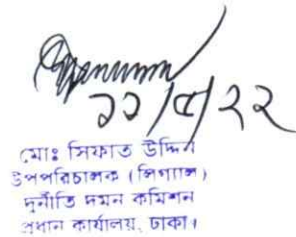 ১১/৫/২২
মোঃ সিফাত উদ্দিন
উপপরিচালক (লিগ্যাল)
দুর্নীতি দমন কমিশন
প্রধান কার্যালয়, ঢাকা।